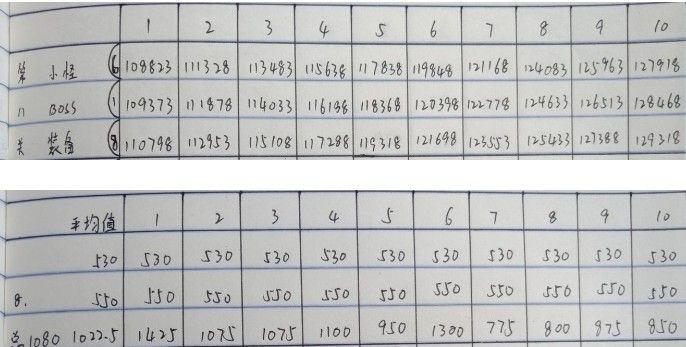 1 2 3 4 5 6 7 8 9 10
第 小怪 6 108823 111328 113483 115638 117838 119848 121168 124083 125963 127918
n BOSS 1 109373 111878 114033 116188 118368 120398 122778 124633 126513 128468
关 装备 8 110798 112953 115108 117288 119318 121698 123553 125433 127388 129318
平均值 1 2 3 4 5 6 7 8 9 10
530 530 530 530 530 530 530 530 530 530 530
8. 550 550 550 550 550 550 550 550 550 550 550
总1080 1022.5 1425 1075 1075 1100 950 1300 775 800 875 850